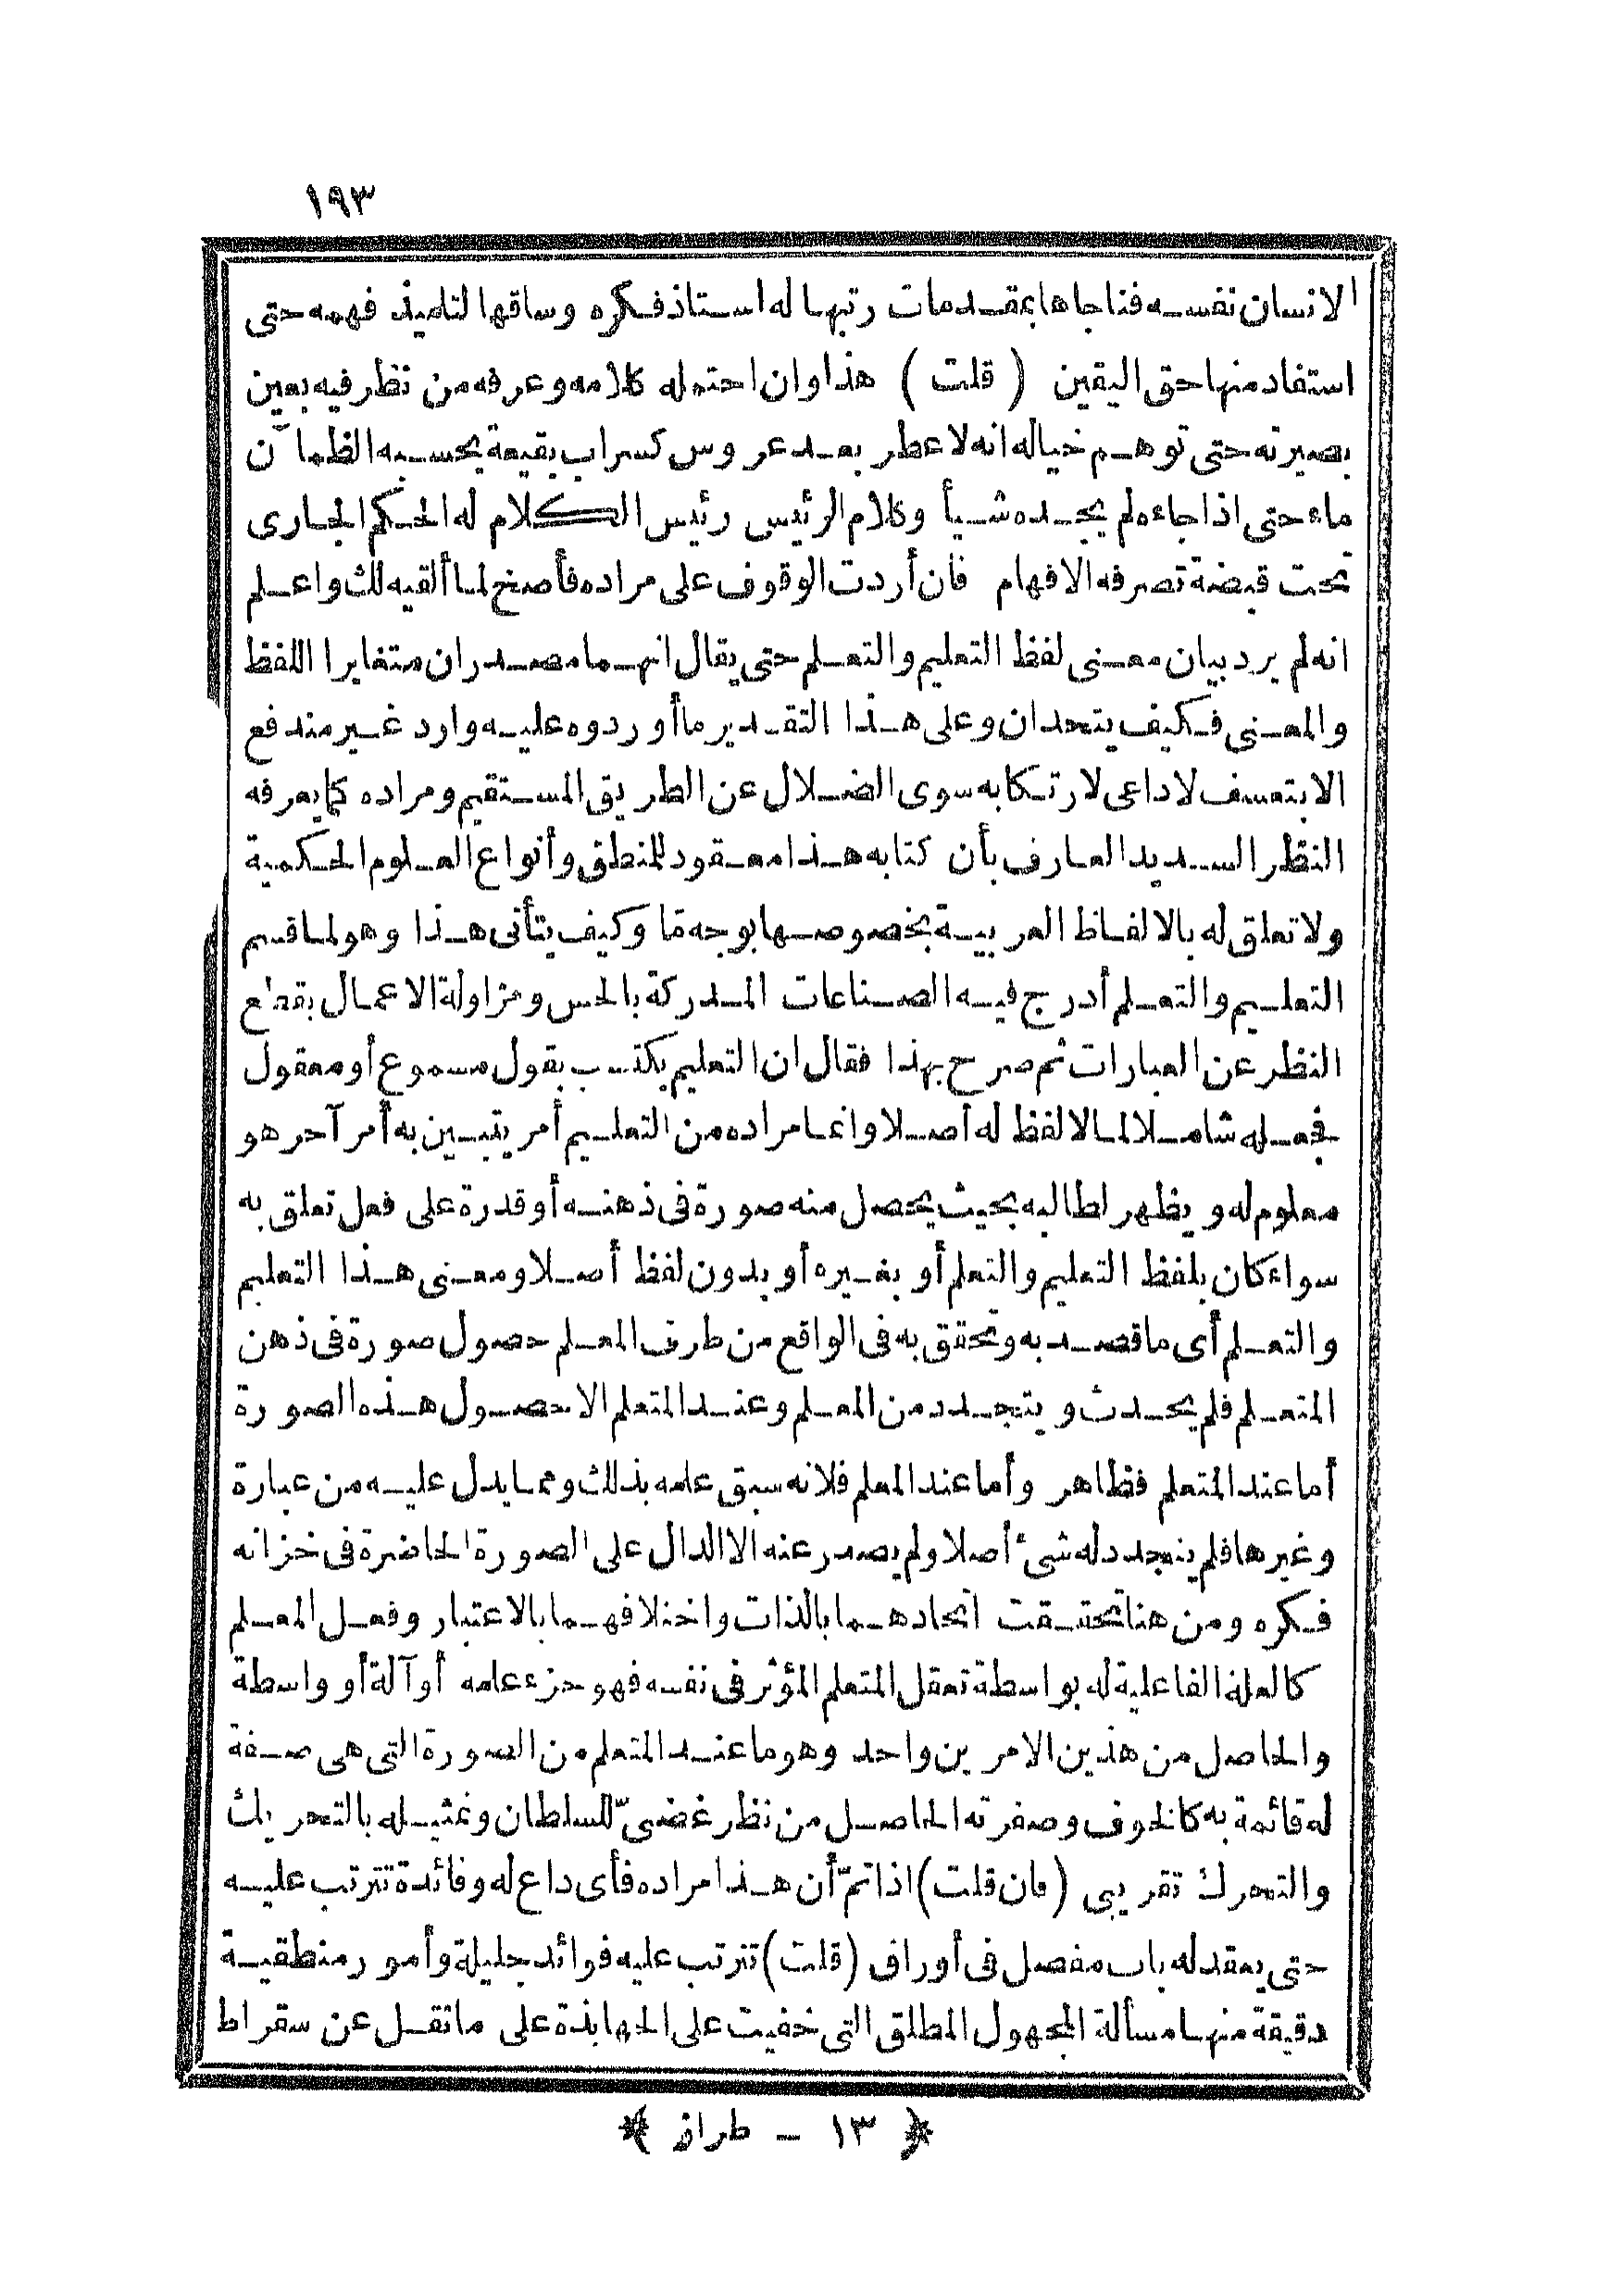 ١٩٣
الانسان نفسه فناجاها بمقدمات رتبها له استاذ فكره وساقها لتلميذ فهمه حتى
استفاد منها حق اليقين (قلت) هذا وان احتمله كلامه وعرفه من نظر فيه بعين
بصيرته حتى توهم خياله انه لا عطر بعد عروس كسراب بقيعة يحسبه الظمآن
ماء حتى اذا جاءه لم يجده شيأ وكلام الرئيس رئيس الكلام له الحكم الجارى
تحت قبضة تصرفه الافهام فان أردت الوقوف على مراده فأصخ لما ألقيه لك واعلم
انه لم يرد بيان معنى لفظ التعليم والتعلم حتى يقال انهما مصدران متغايرا اللفظ
والمعنى فكيف يتحدان وعلى هذا التقدير ما أوردوه عليه وارد غير مندفع
الا بتعسف لا داعى لارتكابه سوى الضلال عن الطريق المستقيم ومراده كما يعرفه
النظر السديد العارف بأن كتابه هذا معقود للمنطق وأنواع العلوم الحكمية
ولا تعلق له بالالفاظ العربية بخصوصها بوجه مّا وكيف يتأتى هذا وهو لما قسم
التعليم والتعلم أدرج فيه الصناعات المدركة بالحس ومزاولة الاعمال بقطع
النظر عن العبارات ثم صرح بهذا فقال ان التعليم يكتسب بقول مسموع أو معقول
فجعله شاملا لما لا لفظ له أصلا وانما مراده من التعليم أمر يتبين به أمر آخر هو
معلوم له ويظهر لطالبه بحيث يحصل منه صورة فى ذهنه أو قدرة على فعل تعلق به
سواء كان بلفظ التعليم والتعلم أو بغيره أو بدون لفظ أصلا ومعنى هذا التعليم
والتعلم أى ما قصد به وتحقق به فى الواقع من طرف المعلم حصول صورة فى ذهن
المتعلم فلم يحدث ويتجدد من المعلم وعند المتعلم الا حصول هذه الصورة
أما عند المتعلم فظاهر وأما عند المعلم فلانه سبق علمه بذلك ومما يدل عليه من عبارة
وغيرها فلم يتجدد له شئ أصلا ولم يصدر عنه الا الدال على الصورة الحاضرة فى خزانه
فكره ومن هنا تحققت اتحادهما بالذات واختلافهما بالاعتبار وفعل المعلم
كالعلة الفاعلية له بواسطة تعقل المتعلم المؤثر فى نفسه فهو جزء علمه أو آلة أو واسطة
والحاصل من هذين الامرين واحد وهو ما عند المتعلم من الصورة التى هى صفة
له قائمة به كالخوف وصفرته الحاصل من نظر غضبىّ للسلطان وتمثيله بالتحريك
والتحرك تقريبى (فان قلت) اذا تمّ أن هذا مراده فأى داع له وفائدة تترتب عليه
حتى يعقد له باب مفصل فى أوراق (قلت) تترتب عليه فوائد جليلة وأمور منطقية
دقيقة منها مسألة المجهول المطلق التى خفيت على الجهابذة على ما نقل عن سقراط
﴿ ١٣ - طراز ﴾